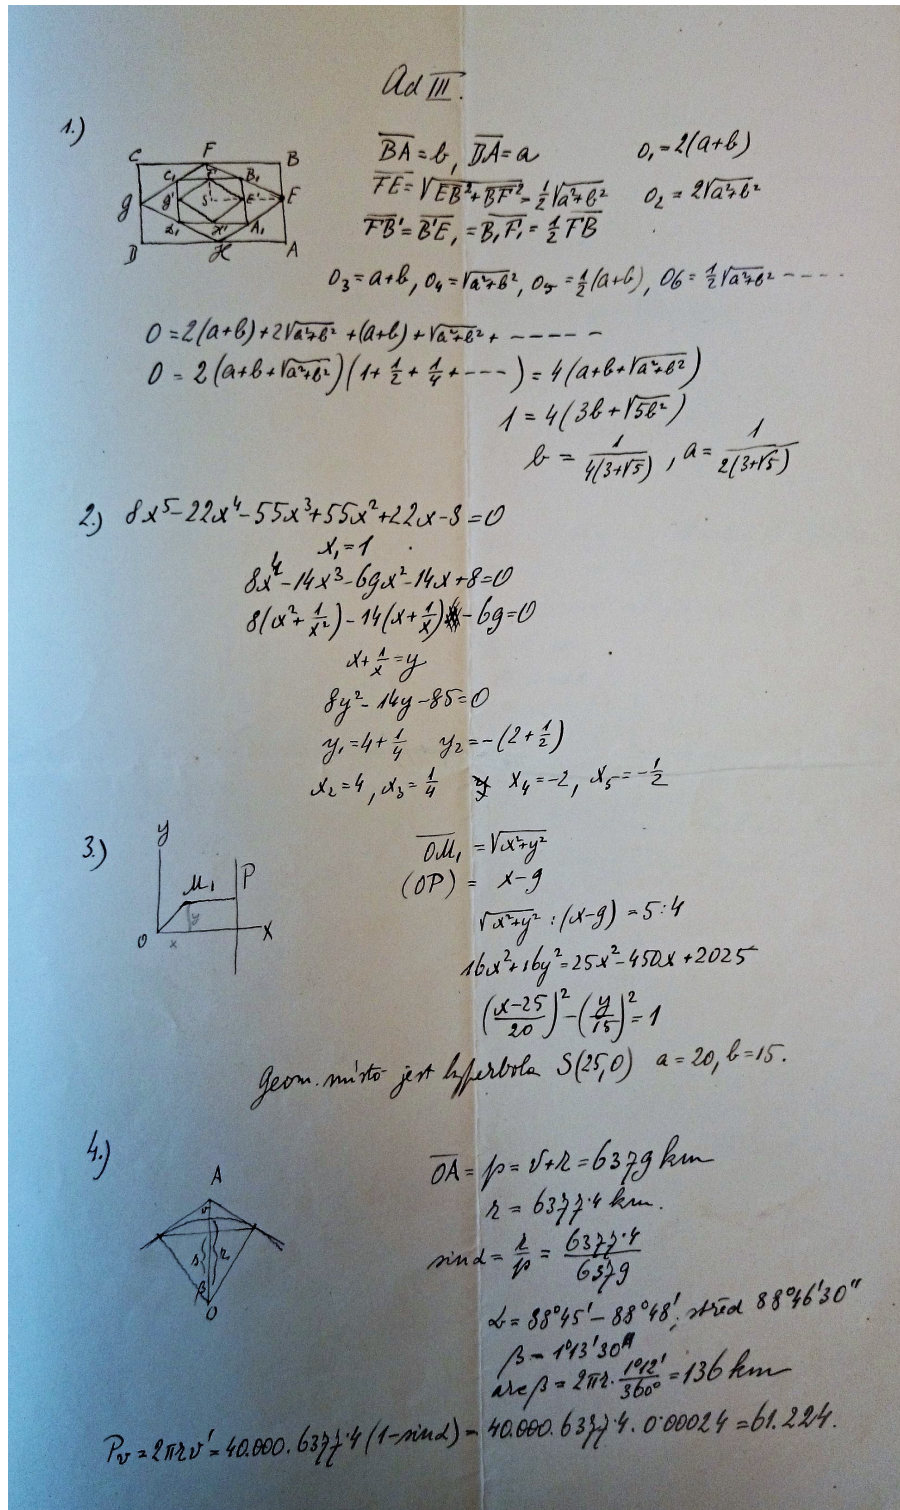 Ad III.
1.)
C F B
C₁ F' B₁
g g' S' E' E
D₁ H' A₁
D H A
BA = b, DA = a   o₁ = 2(a+b)
FE = √EB² + BF² = ½√a²+b²   o₂ = 2√a²+b²
FB' = B'E₁ = B₁F₁ = ½ FB
o₃ = a+b, o₄ = √a²+b², o₅ = ½(a+b), o₆ = ½√a²+b² - - - -
O = 2(a+b) + 2√a²+b² + (a+b) + √a²+b² + - - - - -
O = 2(a+b+√a²+b²)(1 + ½ + ¼ + - - -) = 4(a+b+√a²+b²)
1 = 4(3b + √5b²)
b = 1/4(3+√5), a = 1/2(3+√5)
2.) 8x⁵ - 22x⁴ - 55x³ + 55x² + 22x - 8 = 0
x₁ = 1
8x⁴ - 14x³ - 69x² - 14x + 8 = 0
8(x² + 1/x²) - 14(x + 1/x) - 69 = 0
x + 1/x = y
8y² - 14y - 85 = 0
y₁ = 4 + ¼   y₂ = -(2 + ½)
x₂ = 4, x₃ = ¼   x₄ = -2, x₅ = -½
3.)
y
M₁ P
y
O x X
OM₁ = √x²+y²
(OP) = x-9
√x²+y² : (x-9) = 5:4
16x² + 16y² = 25x² - 450x + 2025
(x-25/20)² - (y/15)² = 1
Geom. místo jest hyperbola S(25,0) a = 20, b = 15.
4.)
A
v
s r
β
O
OA = p = v+r = 6379 km
r = 6377·4 km.
sin α = r/p = 6377·4/6379
α = 88°45' - 88°48'; střed 88°46'30"
β = 1°13'30"
arc β = 2πr · 1°12'/360° = 136 km
Pᵥ = 2πrv' = 40.000. 6377·4 (1 - sin α) = 40.000. 6377·4 . 0·00024 = 61.224.